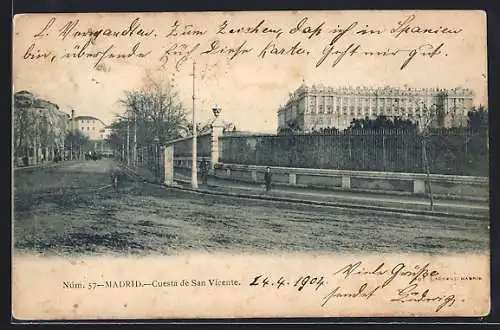 L. Vergandten. Zum Zeichen, daß ich in Spanien
bin, übersende für Diese Karte. Geht mir gut
Núm. 57—MADRID.—Cuesta de San Vicente.
24.4.1904
Viele Grüße
sendet Ludwig